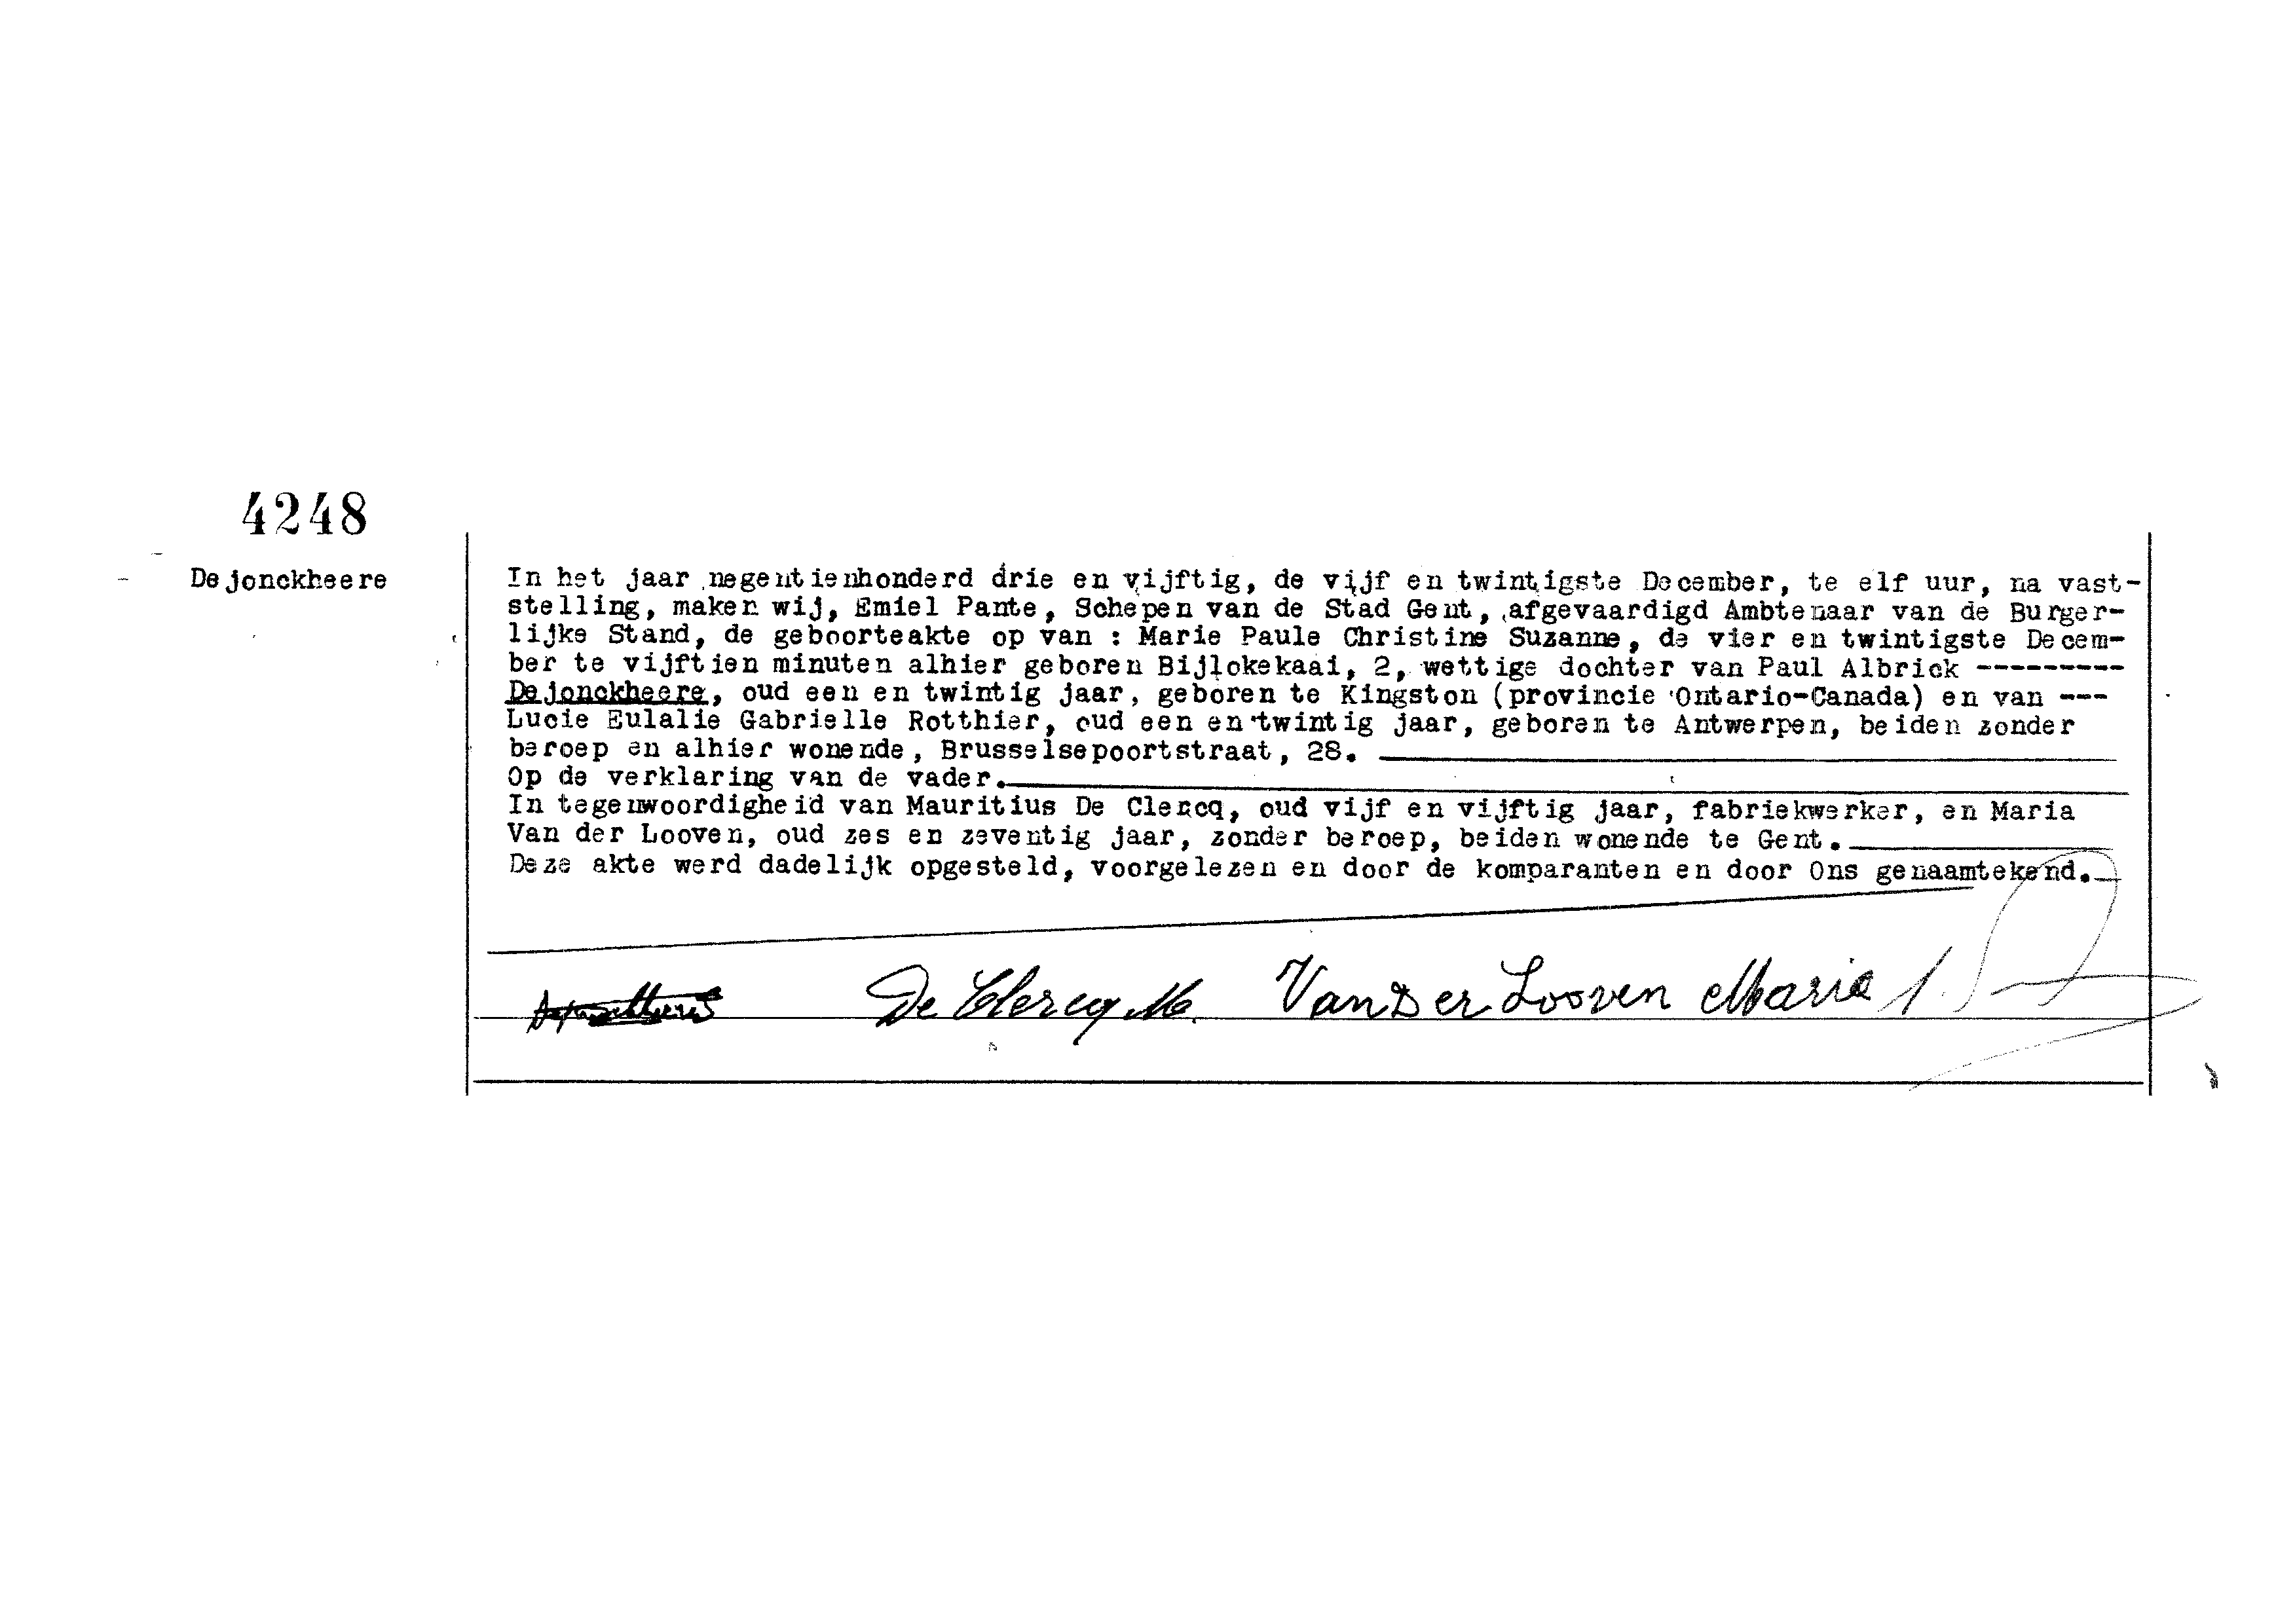 4248
Dejonckheere
In het jaar negentienhonderd drie en vijftig, de vijf en twintigste December, te elf uur, na vast-
stelling, maken wij, Emiel Pante, Schepen van de Stad Gent, afgevaardigd Ambtenaar van de Burger-
lijke Stand, de geboorteakte op van : Marie Paule Christine Suzanne, de vier en twintigste Decem-
ber te vijftien minuten alhier geboren Bijlokekaai, 2, wettige dochter van Paul Albrick ---------
Dejonckheere, oud een en twintig jaar, geboren te Kingston (provincie Ontario-Canada) en van ---
Lucie Eulalie Gabrielle Rotthier, oud een en twintig jaar, geboren te Antwerpen, beiden zonder
beroep en alhier wonende, Brusselsepoortstraat, 28.
Op de verklaring van de vader.
In tegenwoordigheid van Mauritius De Clercq, oud vijf en vijftig jaar, fabriekwerker, en Maria
Van der Looven, oud zes en zeventig jaar, zonder beroep, beiden wonende te Gent.
Deze akte werd dadelijk opgesteld, voorgelezen en door de komparanten en door Ons genaamtekend.
De Clercq M. Van Der Looven Maria